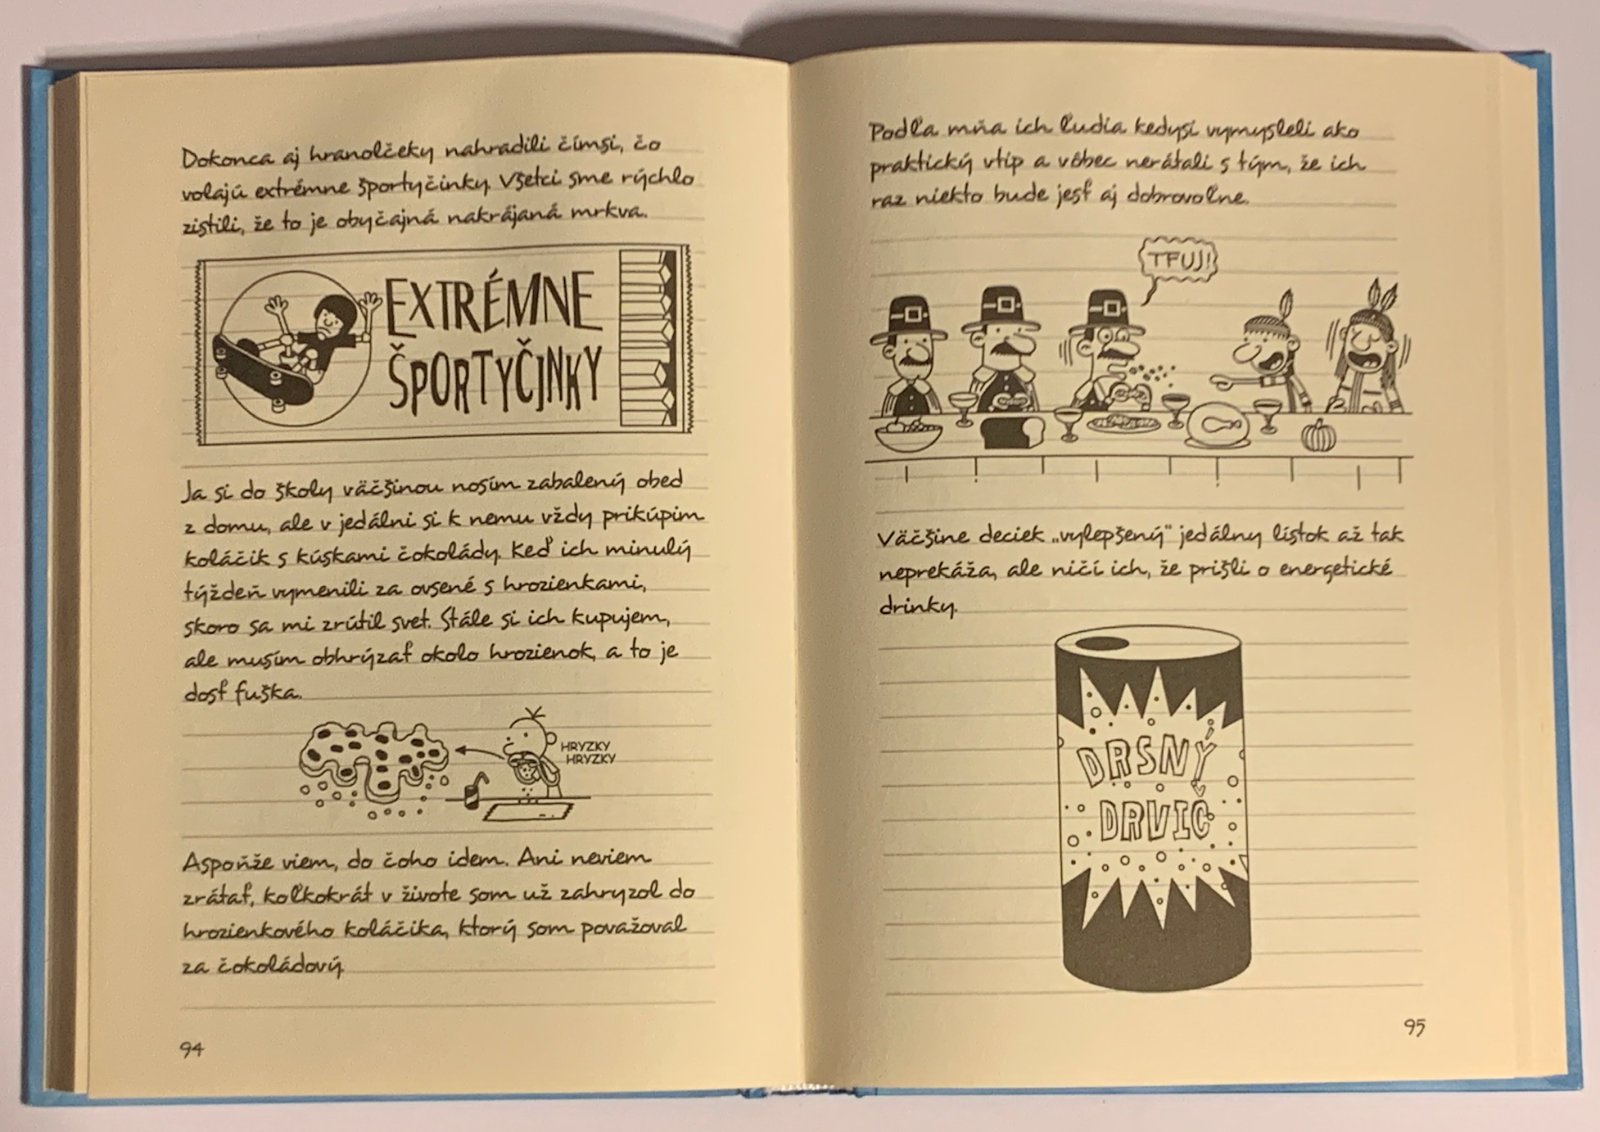 Dokonca aj hranolčeky nahradili čímsi, čo
volajú extrémne športyčinky. Všetci sme rýchlo
zistili, že to je obyčajná nakrájaná mrkva.
EXTRÉMNE
ŠPORTYČINKY
Ja si do školy väčšinou nosím zabalený obed
z domu, ale v jedálni si k nemu vždy prikúpim
koláčik s kúskami čokolády. Keď ich minulý
týždeň vymenili za ovsené s hrozienkami,
skoro sa mi zrútil svet. Stále si ich kupujem,
ale musím obhrýzať okolo hrozienok, a to je
dosť fuška.
HRYZKY
HRYZKY
Aspoňže viem, do čoho idem. Ani neviem
zrátať, koľkokrát v živote som už zahryzol do
hrozienkového koláčika, ktorý som považoval
za čokoládový.
94
Podľa mňa ich ľudia kedysi vymysleli ako
praktický vtip a vôbec nerátali s tým, že ich
raz niekto bude jesť aj dobrovoľne.
TFUJ!
Väčšine deciek „vylepšený“ jedálny lístok až tak
neprekáža, ale ničí ich, že prišli o energetické
drinky.
DRSNÝ
DRVIČ
95